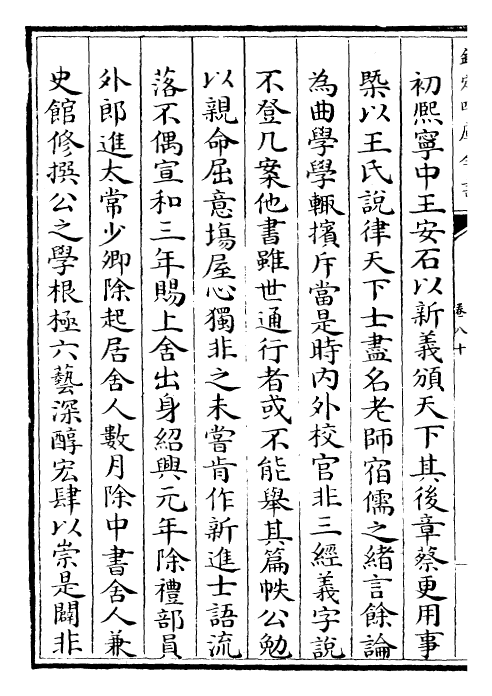 欽定四庫全書
卷八十
初熈寧中王安石以新義頒天下其後章蔡更用事
槩以王氏說律天下士盡名老師宿儒之緒言餘論
為曲學學輙擯斥當是時内外校官非三經義字說
不登几案他書雖世通行者或不能舉其篇帙公勉
以親命屈意塲屋心獨非之未嘗肯作新進士語流
落不偶宣和三年賜上舍出身紹興元年除禮部員
外郎進太常少卿除起居舍人數月除中書舍人兼
史館修撰公之學根極六藝深醇宏肆以崇是闢非